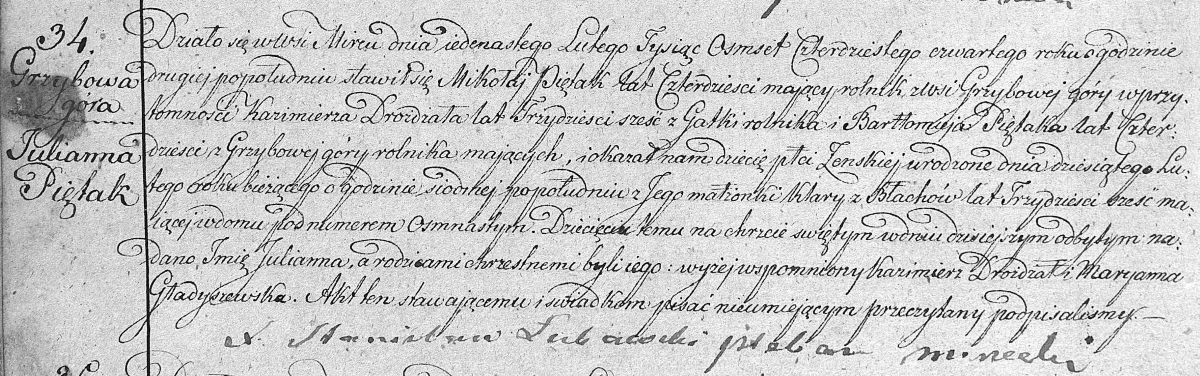 34.
Grzybowa
góra
Julianna
Piętak
Działo się w Wsi Mircu dnia iedenastego Lutego Tysiąc Osmset Czterdziestego czwartego roku o godzinie
drugiej popołudniu stawił się Mikołaj Piętak lat Czterdziesci maiący rolnik z Wsi Grzybowej góry w przy-
tomności Kazimierza Drożdżała lat Trzydziesci szesć z Gatki rolnika i Bartłomieja Piętaka lat Czter-
dziesci z Grzybowej góry rolnika maiących, i okazał nam dziecię płci Żenskiej urodzone dnia dziesiątego Lu-
tego roku bieżącego o godzinie siodmej popołudniu z Jego małżonki Klary z Błachów lat Trzydziesci szesć ma-
iącej w domu pod numerem Osmnastym. Dziecięciu temu na chrzcie swiętym w dniu dzisiejszym odbytym na-
dano Imię Julianna, a rodzicami chrzestnemi byli iego: wyżej wspomniony Kazimierz Drożdżał i Maryanna
Gładyszewska. Akt ten stawaiącemu i swiadkom pisać nieumiejącym przeczytany podpisalismy. —
X. Stanisław pleban mirecki